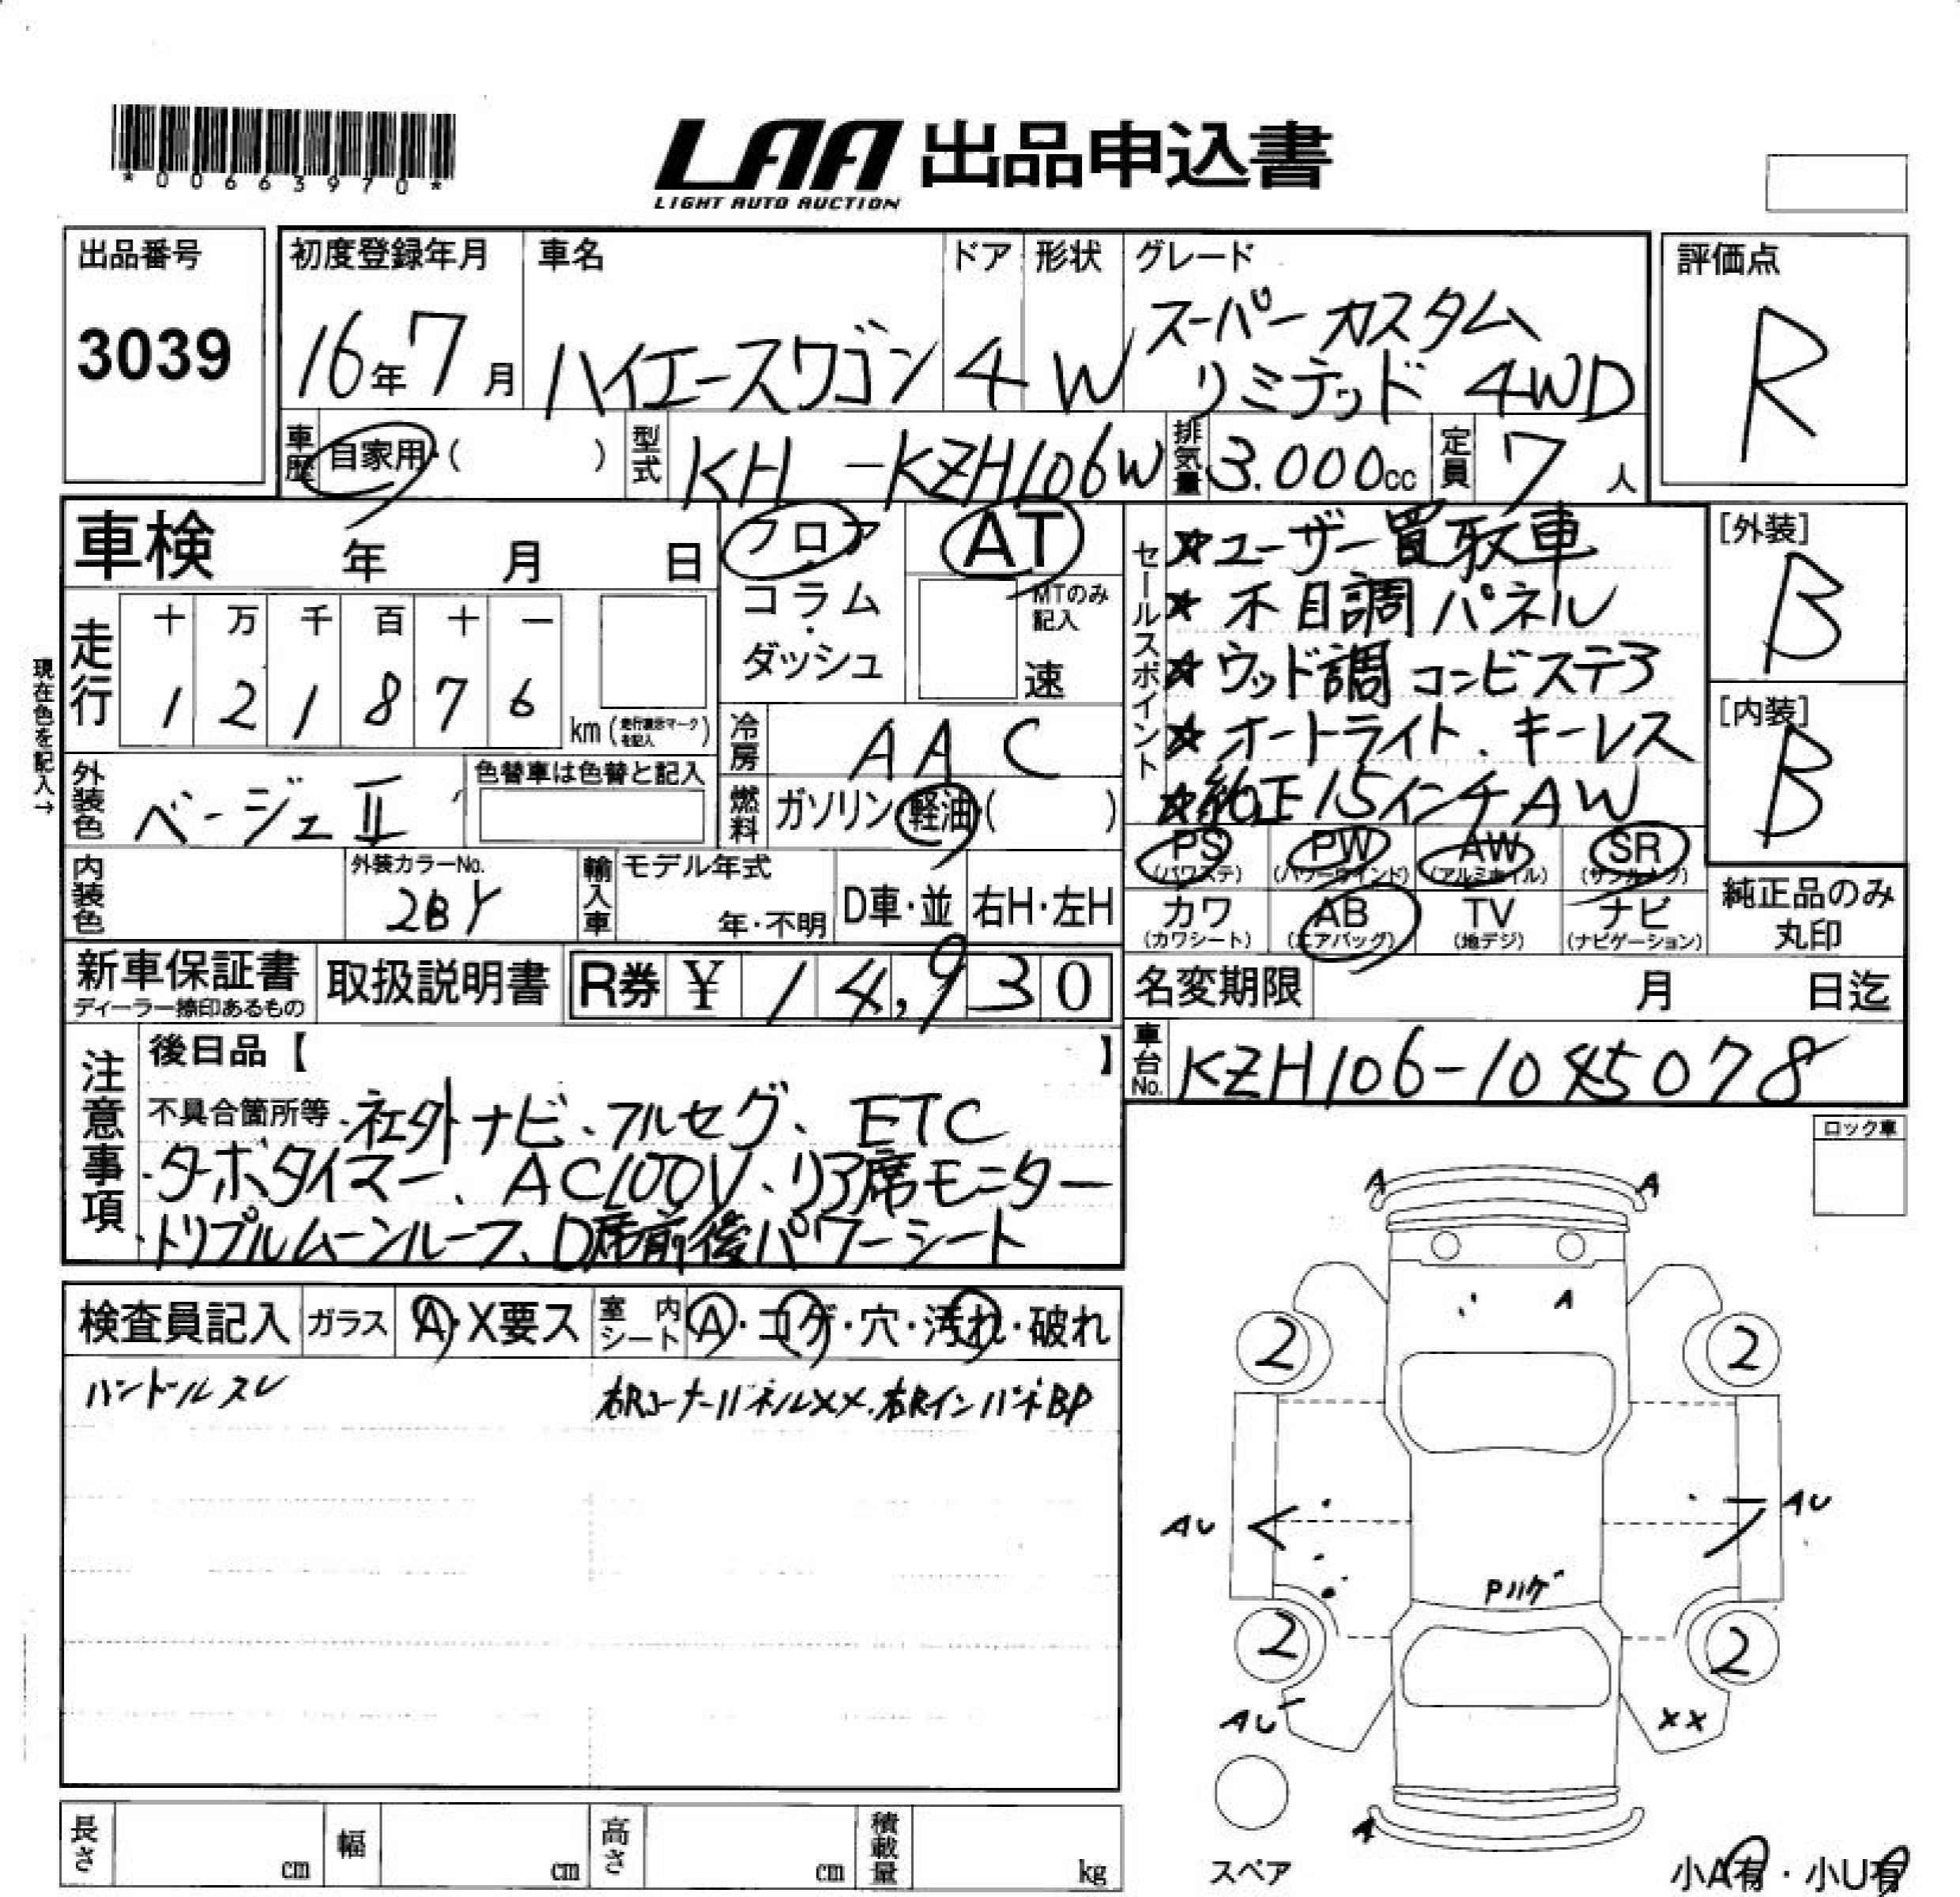 *00663970*
LAA 出品申込書
LIGHT AUTO AUCTION
出品番号
3039
初度登録年月
16年7月
車名
ハイエースワゴン
ドア
4
形状
W
グレード
スーパーカスタム
リミテッド 4WD
評価点
R
車歴 自家用・( )
型式 KH-KZH106W
排気量 3.000cc
定員 7人
車検 年 月 日
フロア
コラム・
ダッシュ
AT
MTのみ記入
速
走行
十 万 千 百 十 一
1 2 1 8 7 6
km (走行表示マークを記入)
現在色を記入→
冷房 AAC
外装色 ベージュⅡ
色替車は色替と記入
燃料 ガソリン・軽油・( )
内装色
外装カラーNo.
2BY
輸入車 モデル年式
年・不明
D車・並
右H・左H
セールスポイント
★ユーザー買取車
★木目調パネル
★ウッド調コンビステア
★オートライト、キーレス
★純正15インチAW
[外装]
B
[内装]
B
PS (パワステ)
PW (パワーウインド)
AW (アルミホイル)
SR (サンルーフ)
カワ (カワシート)
AB (エアバッグ)
TV (地デジ)
ナビ (ナビゲーション)
純正品のみ
丸印
新車保証書
ディーラー捺印あるもの
取扱説明書
R券 ¥ 14,930
名変期限 月 日迄
車台No. KZH106-1045078
注意事項
後日品【 】
不具合箇所等・社外ナビ、フルセグ、ETC
・ターボタイマー、AC100V、リア席モニター
・トリプルムーンルーフ、D席前後パワーシート
ロック車
検査員記入 ガラス A・X要ス 室内シート A・コゲ・穴・汚れ・破れ
ハンドルスレ
右Rコーナーパネルxx、右RインパネBP
A A
A
2 2
AU AU
Pハゲ
2 2
AU xx
A
スペア
長さ cm 幅 cm 高さ cm 積載量 kg
小A有・小U有